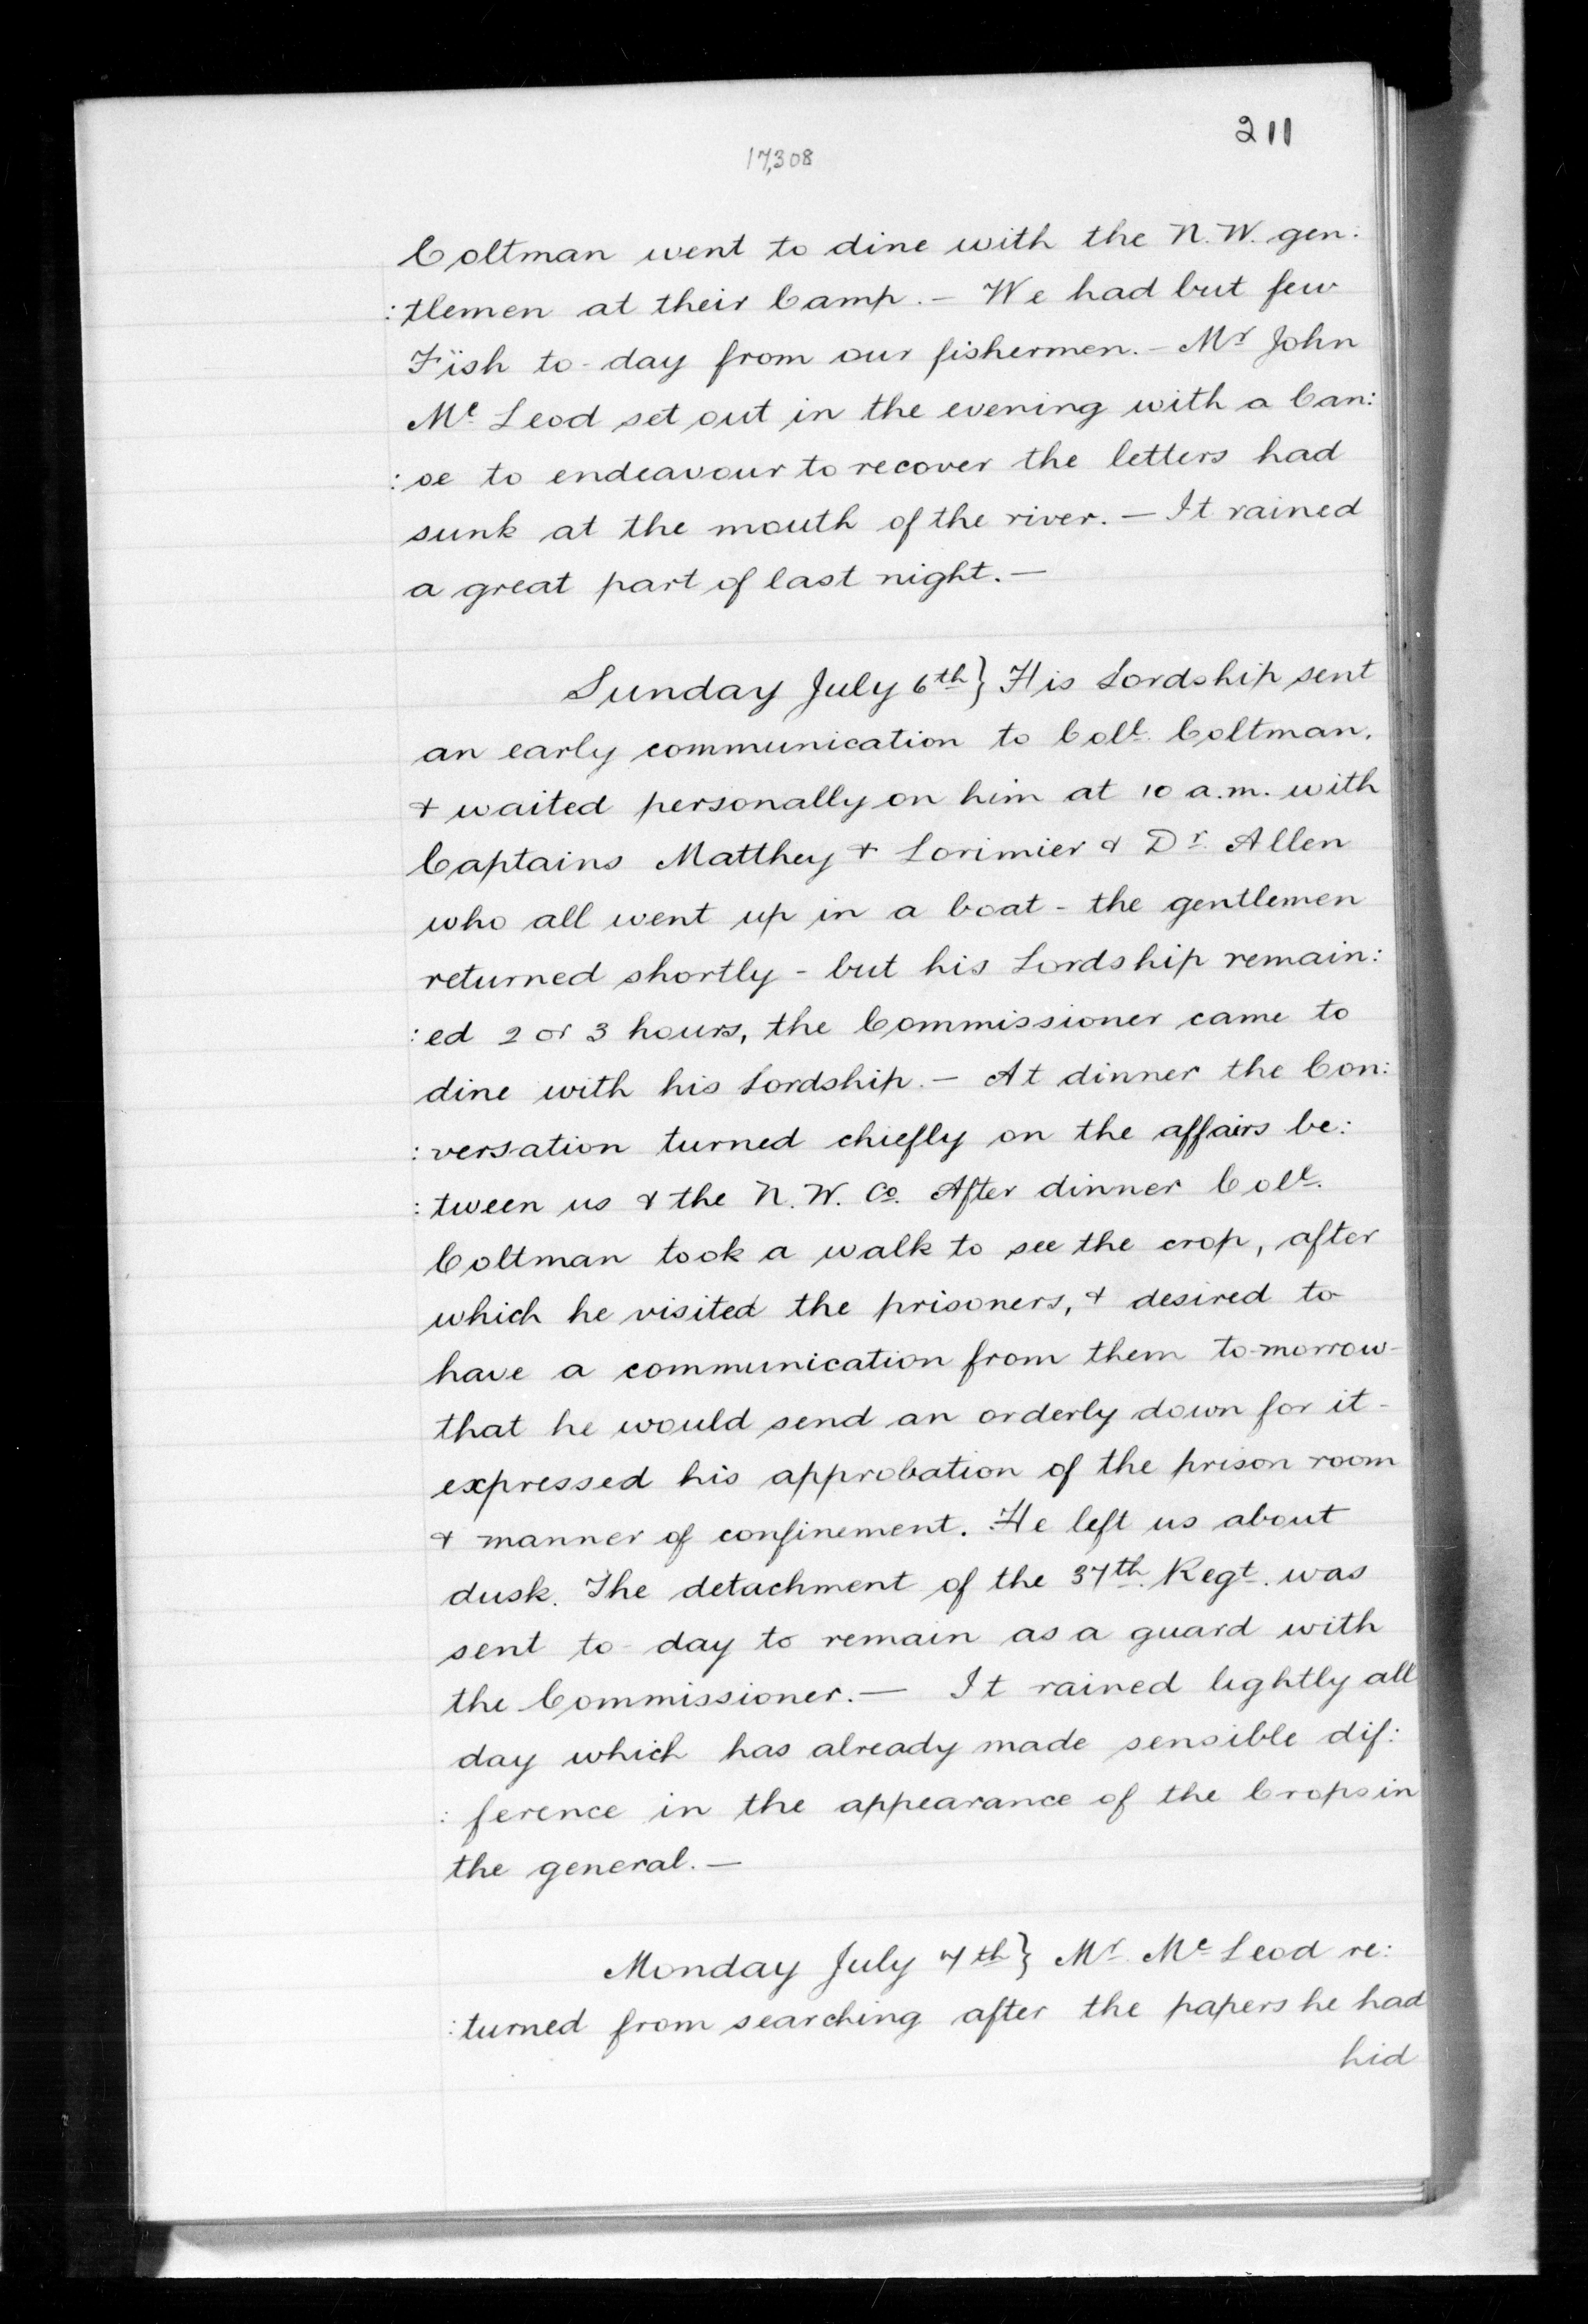 211
17,308
Coltman went to dine with the N. W. gen:
:tlemen at their Camp. — We had but few
Fish to-day from our fishermen. — Mr John
Mc Leod set out in the evening with a Can:
:oe to endeavour to recover the letters had
sunk at the mouth of the river. — It rained
a great part of last night. —
Sunday July 6th } His Lordship sent
an early communication to Coll. Coltman,
& waited personally on him at 10 a.m. with
Captains Matthey & Lorimier & Dr. Allen
who all went up in a boat - the gentlemen
returned shortly - but his Lordship remain:
:ed 2 or 3 hours, the Commissioner came to
dine with his Lordship. — At dinner the Con:
:versation turned chiefly on the affairs be:
:tween us & the N. W. Co. After dinner Coll.
Coltman took a walk to see the crop, after
which he visited the prisoners, & desired to
have a communication from them to-morrow -
that he would send an orderly down for it -
expressed his approbation of the prison room
& manner of confinement. He left us about
dusk. The detachment of the 37th. Regt. was
sent to-day to remain as a guard with
the Commissioner. — It rained lightly all
day which has already made sensible dif:
:ference in the appearance of the Crops in
the general. —
Monday July 7th } Mr. Mc Leod re:
:turned from searching after the papers he had
hid